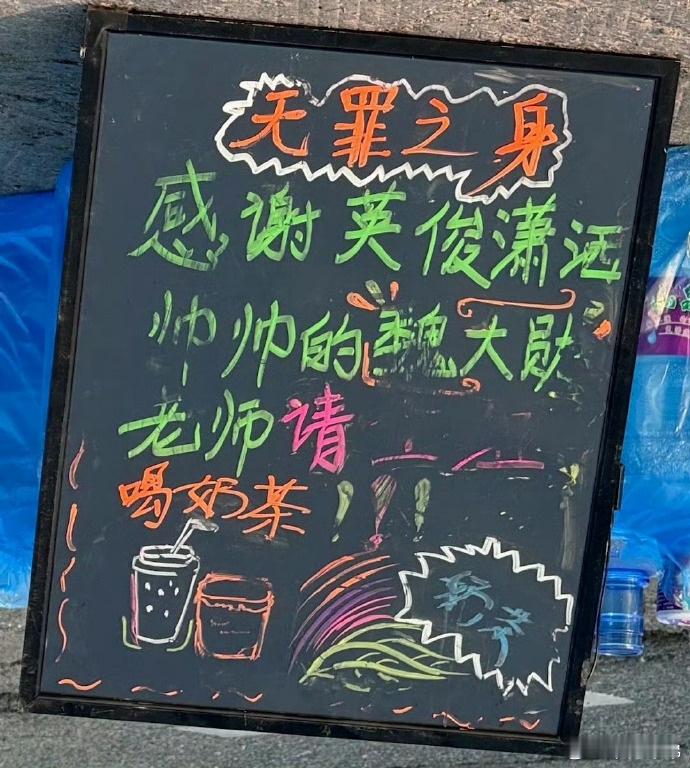 无罪之身
感谢英俊潇洒
帅帅的魏大勋
老师请
喝奶茶!!!